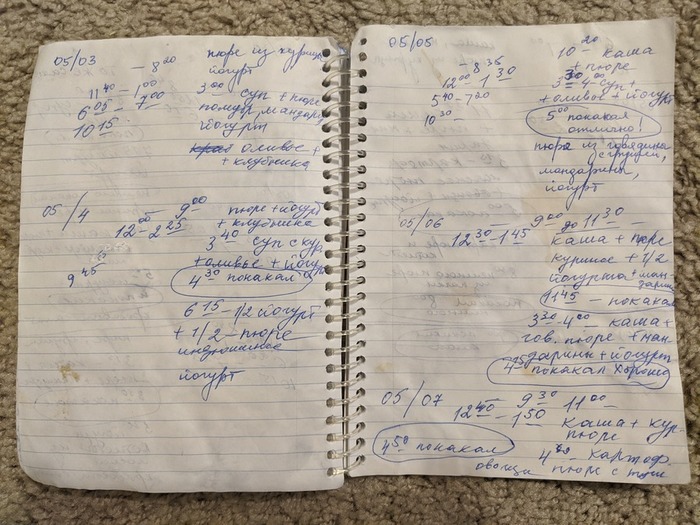 05/03 – 8 20 пюре из курицы
йогурт
11 40 – 1 00 3 00 – суп + пюре
6 05 – 7 00 помидор, мандарин
10 15 йогурт
оливье +
+ клубника
05/4 – 9 00 пюре + йогурт
+ клубника
12 00 – 2 25
3 40 суп с кур
+ оливье + йогурт
9 45 4 30 покакал
6 15 – 1/2 йогурт
+ 1/2 – пюре
индюшиное
йогурт
05/05 – 8 35 10 20 – каша
+ пюре
12 00 – 1 30
3 30 – 4 00 – суп +
5 40 – 7 20 + оливье + йогурт
10 30 5 00 покакал
отлично!
пюре из говядины
с грушей,
мандарин,
йогурт
05/06 – 9 00 до 11 30 –
12 30 – 1 45 каша + пюре
куриное + 1/2
йогурта + ман-
дарин
11 45 – покакал
3 30 – 4 00 – каша +
гов. пюре + ман-
дарины + йогурт
4 15 покакал хорошо
05/07 – 9 30 11 00 –
12 40 – 1 50 каша + кур.
пюре
4 50 покакал 4 00 – картоф.
овощи пюре с